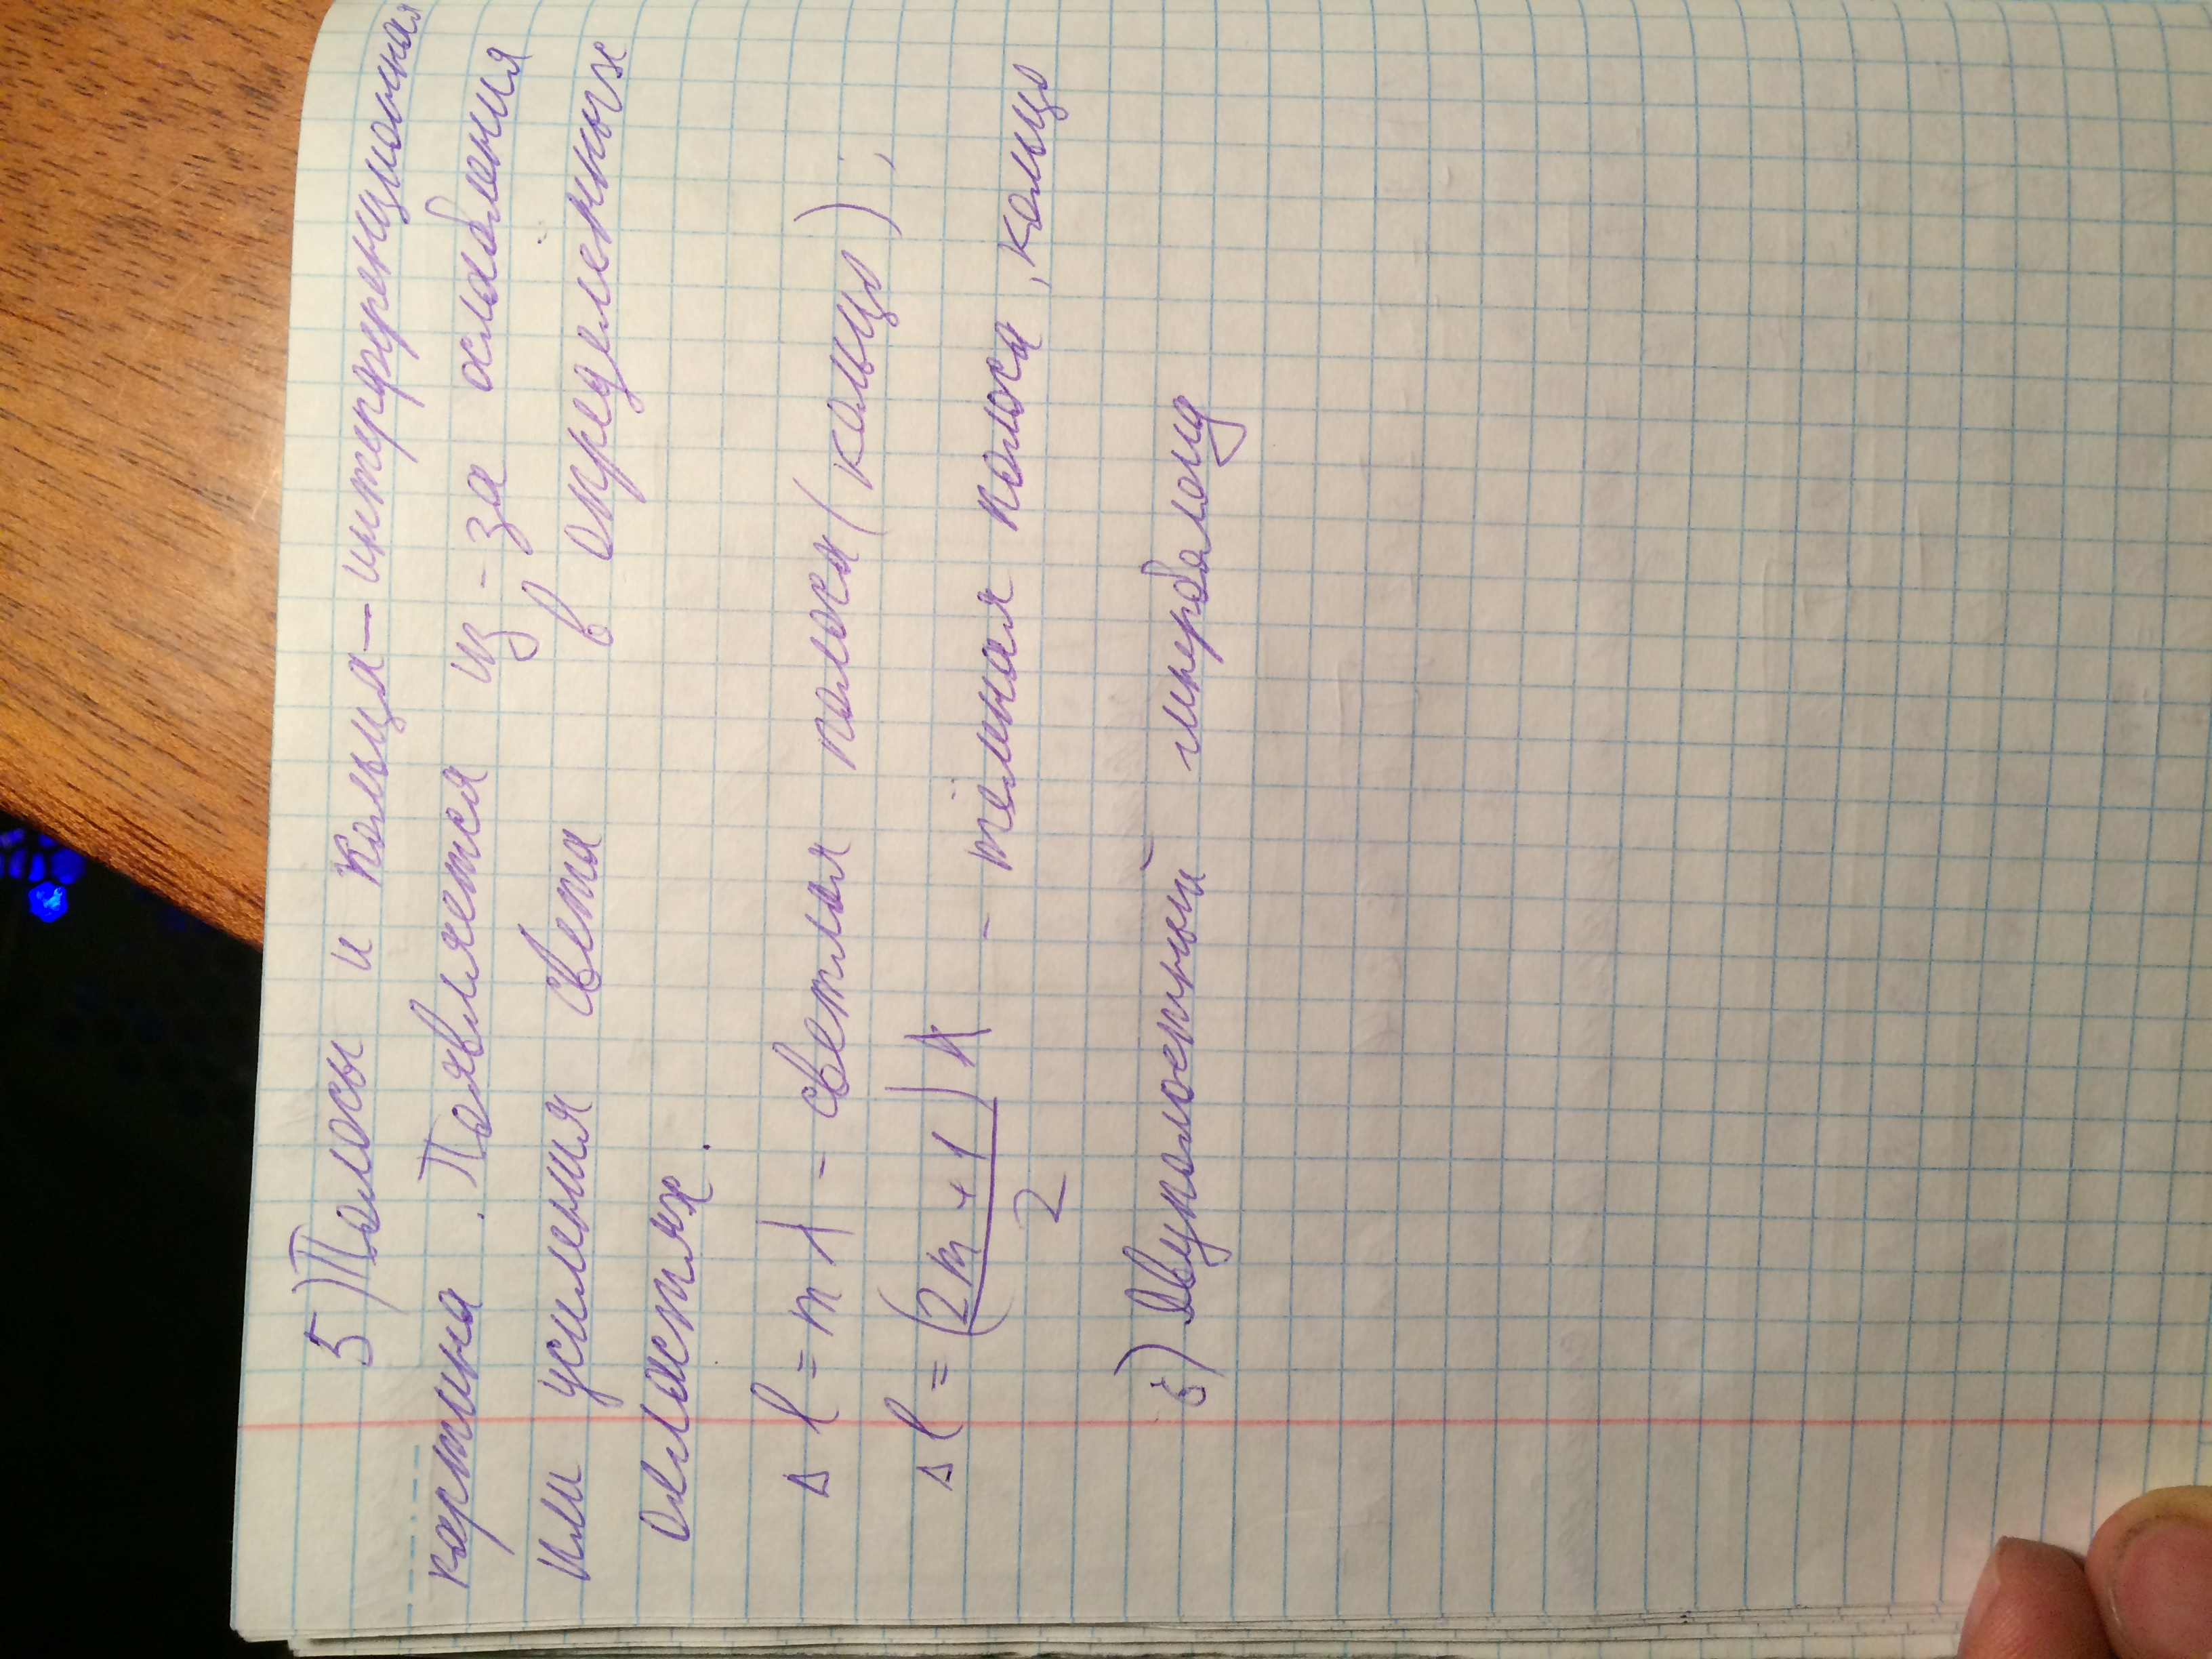 5) Полосы и кольца — интерференционная
картина. Появляется из-за ослабления
или усиления света в определённых
областях.
Δl = mλ - светлая полоса (кольцо);
Δl = (2m+1)/2 λ - тёмная полоса, кольцо
6) Двуполостный гиперболоид